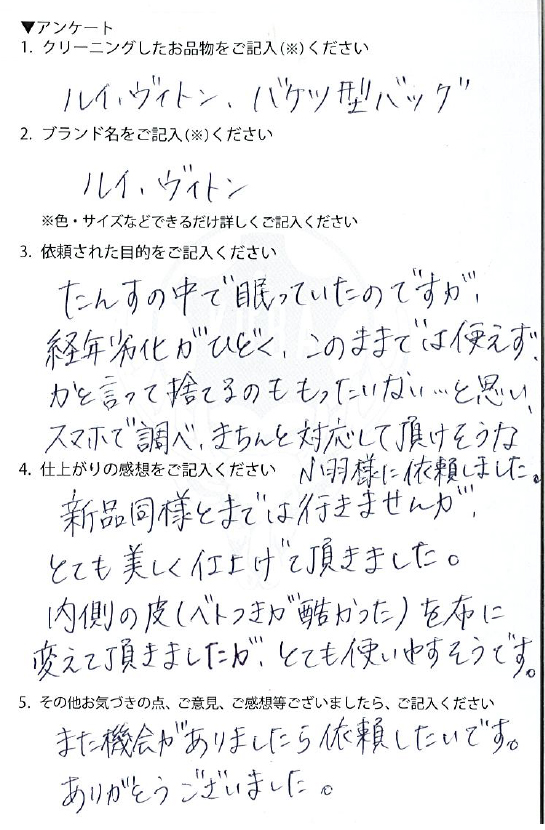 ▼アンケート
1. クリーニングしたお品物をご記入(※)ください
ルイ、ヴィトン、バケツ型バッグ
2. ブランド名をご記入(※)ください
ルイ、ヴィトン
※色・サイズなどできるだけ詳しくご記入ください
3. 依頼された目的をご記入ください
たんすの中で眠っていたのですが、
経年劣化がひどく、このままでは使えず、
かと言って捨てるのももったいない…と思い、
スマホで調べ、きちんと対応して頂けそうな
羽様に依頼しました。
4. 仕上がりの感想をご記入ください
新品同様とまでは行きませんが、
とても美しく仕上げて頂きました。
内側の皮(ベトつきが酷かった)を布に
変えて頂きましたが、とても使いやすそうです。
5. その他お気づきの点、ご意見、ご感想等ございましたら、ご記入ください
また機会がありましたら依頼したいです。
ありがとうございました。